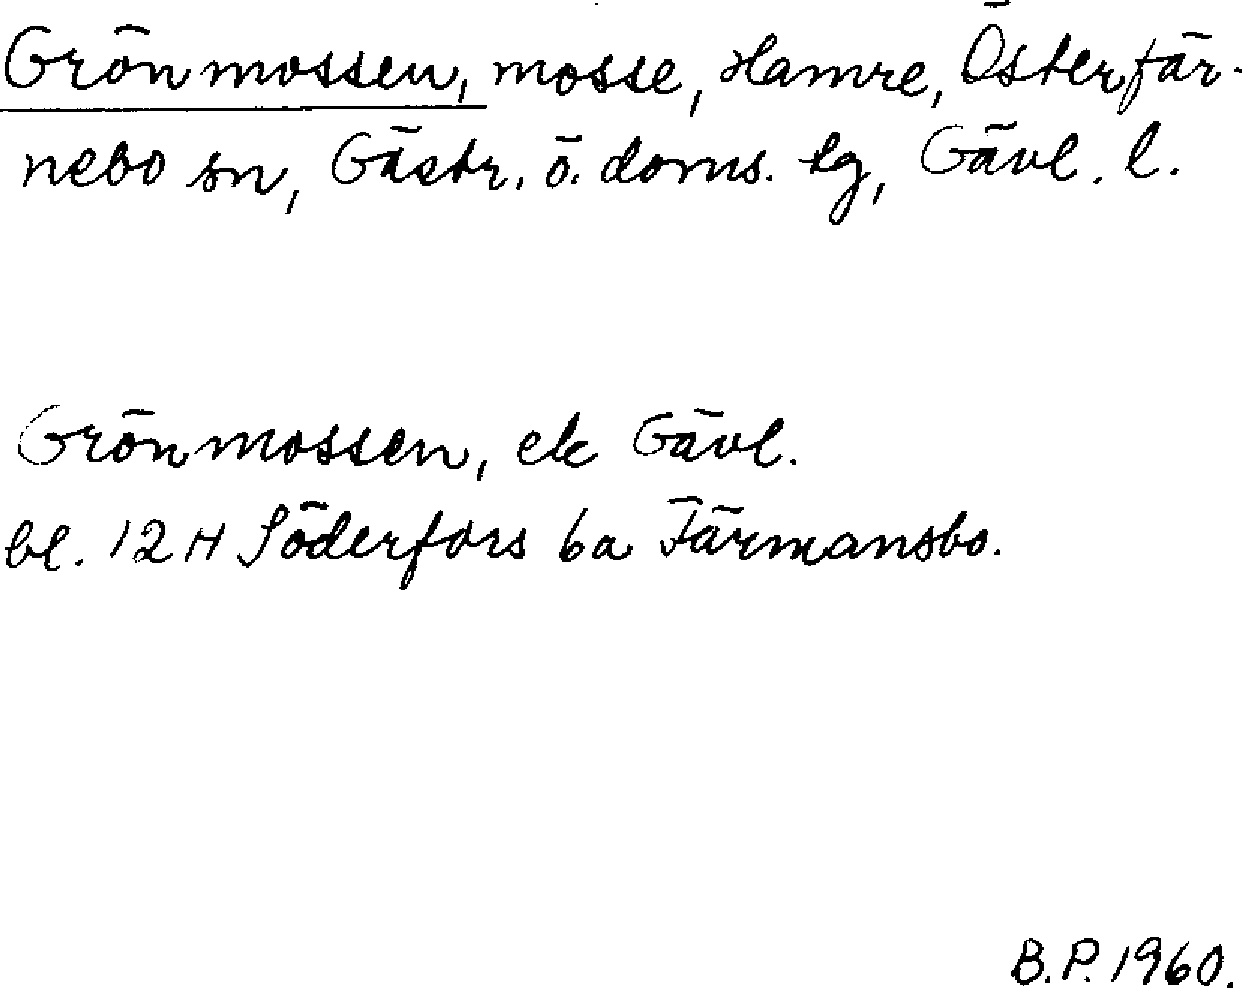 Grönmossen, mosse, Hamre, Österfär-
nebo sn, Gästr. ö. doms. lg, Gävl. l.
Grönmossen, ek Gävl.
bl. 12 H Söderfors 6a Färmansbo.
B.P. 1960.